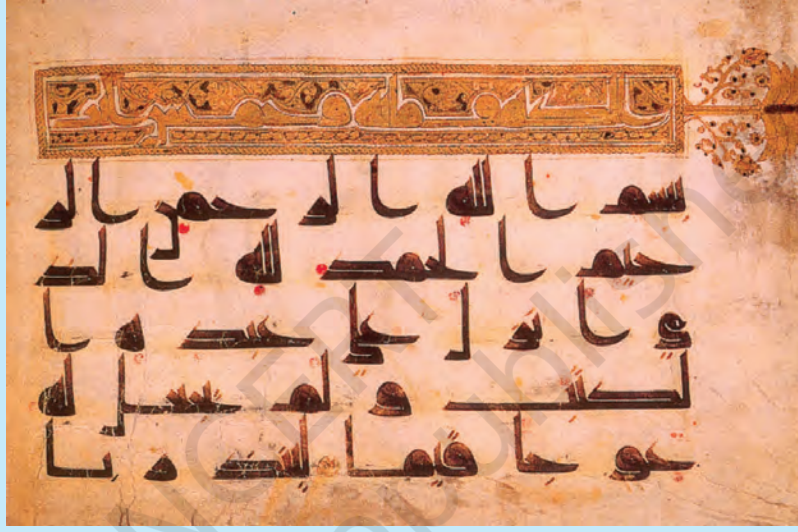 بسم الله الرحمن الر
حيم الحمد لله الذ
ي انزل على عبده ا
لكتب ولم يجعل له
عوجا قيما لينذر با
NCERT